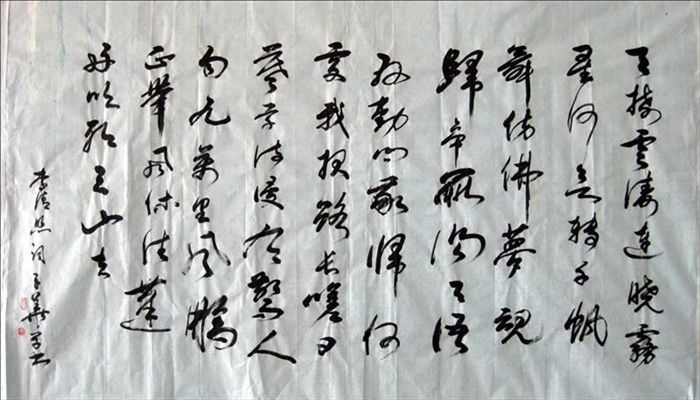 天接雲濤連曉霧
星河欲轉千帆
舞仿佛夢魂
歸帝所聞天語
殷勤問我歸何
處我報路長嗟日
暮學詩謾有驚人
句九萬里風鵬
正舉風休住蓬
舟吹取三山去
李清照詞